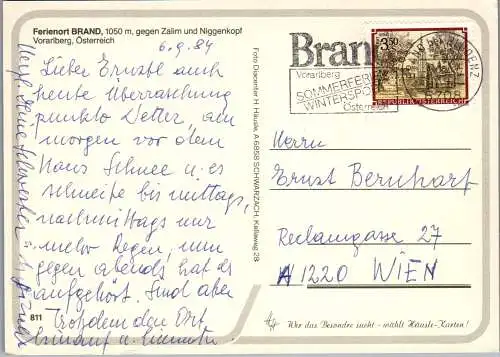 Ferienort BRAND, 1050 m, gegen Zalim und Niggenkopf
Vorarlberg, Österreich
6.9.84
Lieber Ernstl auch
heute Überraschung
punkto Wetter, am
morgen vor dem
Haus Schnee u. es
schneite bis mittags,
nachmittags nur
mehr Regen, nun
gegen abends hat es
aufgehört. Sind aber
Trotzdem den Ort
hinauf u.
Herzl. Deine Schwester
811
Foto Diacenter H. Häusle, A 6858 SCHWARZACH, Kaßaweg 28
Brand
Vorarlberg
SOMMERFERIEN
WINTERSPORT
Österreich
3.50
REPUBLIK ÖSTERREICH
Herrn
Ernst Bernhart
Reclamgasse 27
A 1220 WIEN
Wer das Besondre sucht - wählt Häusle-Karten!